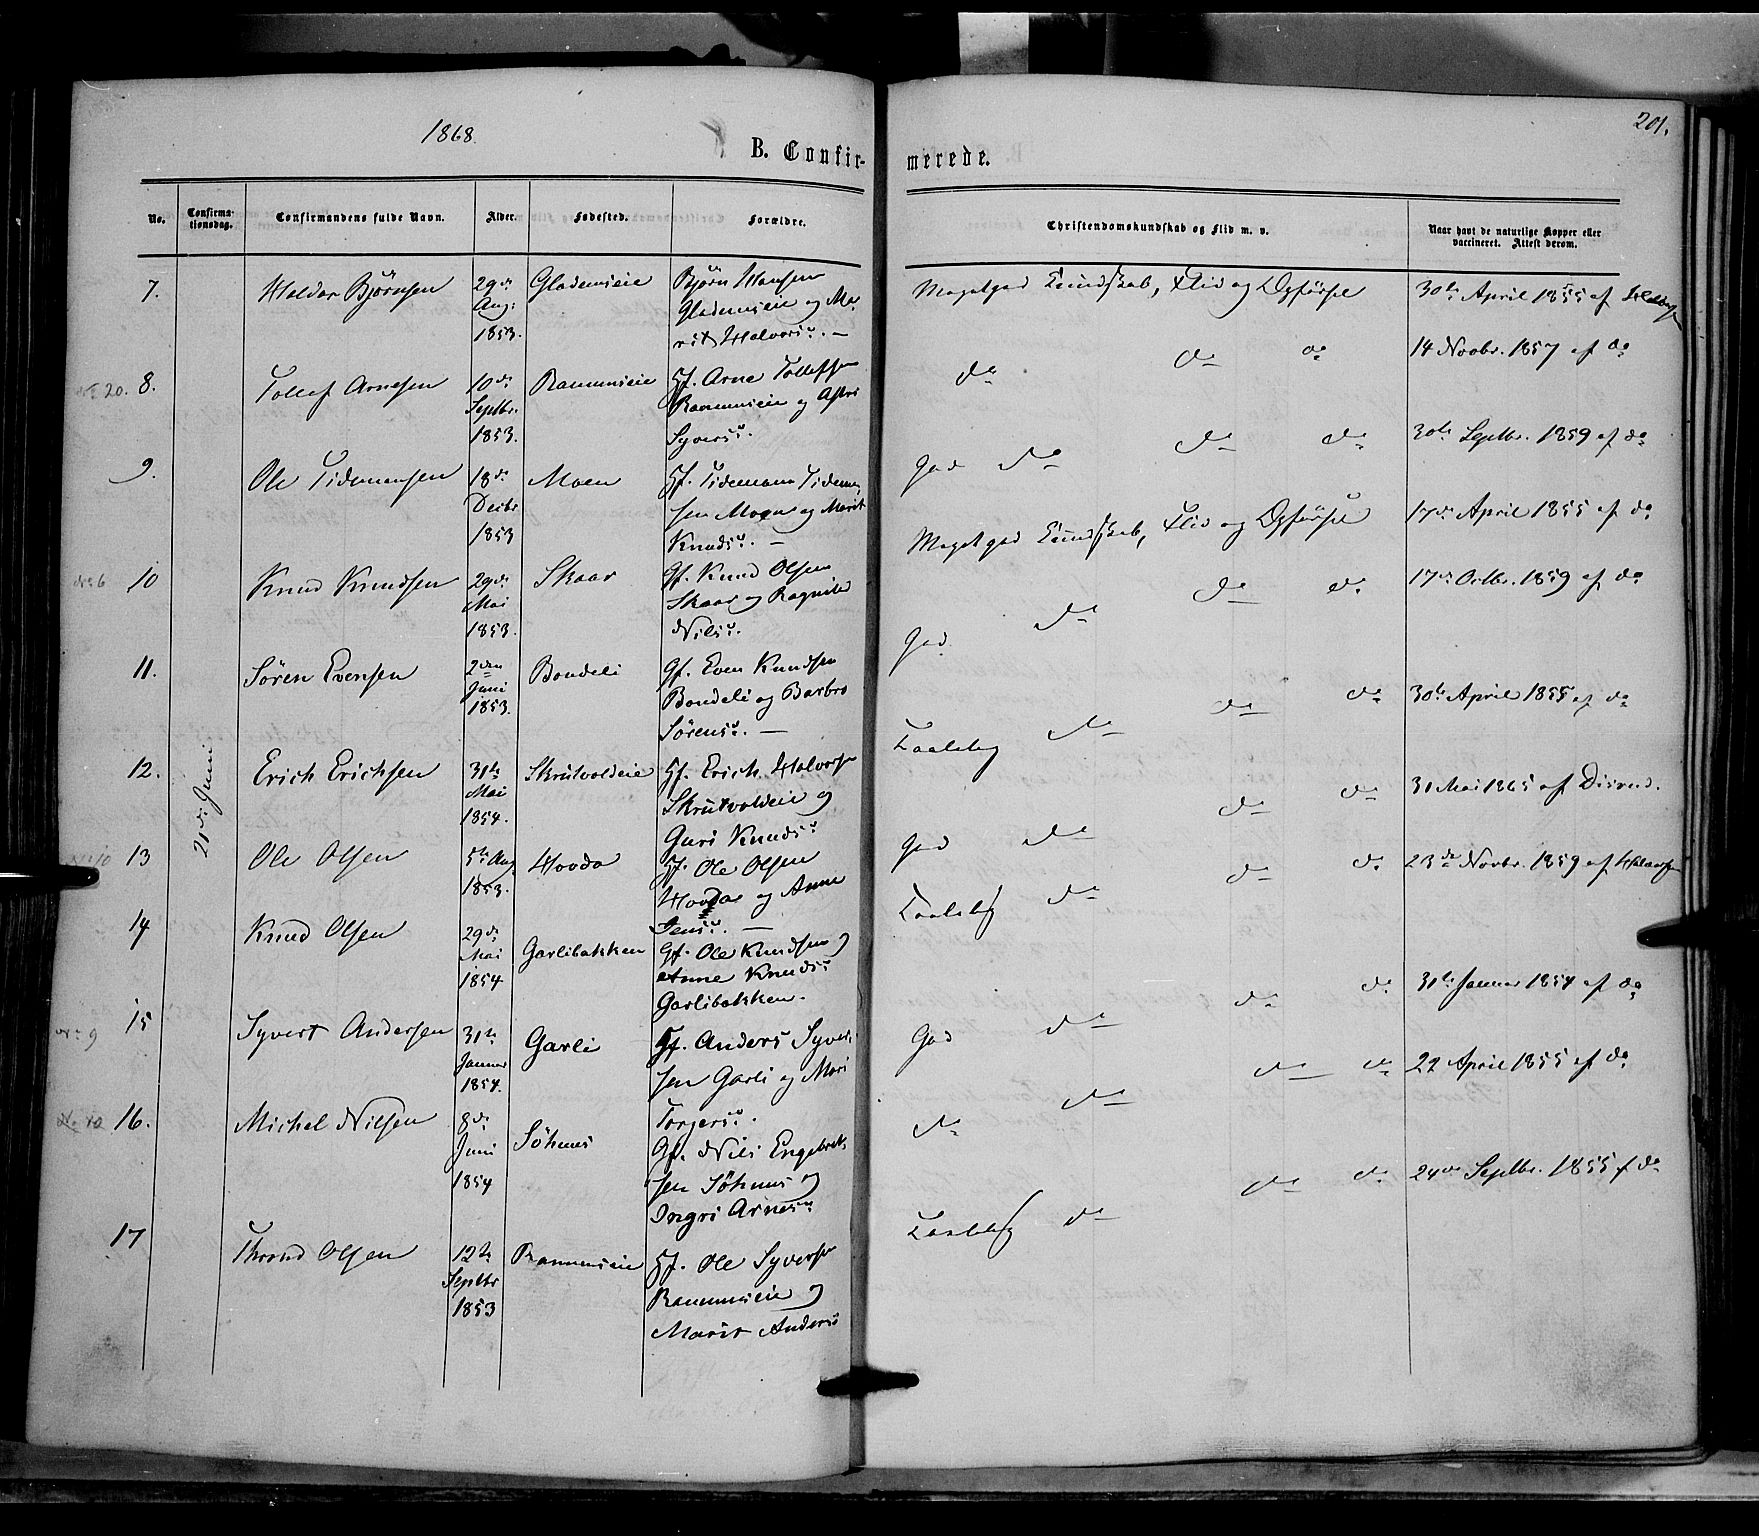 1868.
201.
B. Confir-
merede.
No.
Confirma-
tionsdag.
Confirmandens fulde Navn.
Alder.
Fødested.
Forældre.
Christendomskundskab og Flid m. v.
Naar havt de naturlige Kopper eller
vaccineret. Attest derom.
21de Juni
7.
Haldor Bjørnsen
29de
Aug:
1853.
Gladensieie
Bjørn Hansen
og Ma-
rit Halvorsd. —
Megetgod Kundskab, Flid og Opførsel
30te April 1855 af
No 20. 8.
Tollef Arnesen
10de
Septbr.
1853.
Rammseie
Gf. Arne Tollefsen
Rammseie og Astri
Syversd.
do do do
14 Novbr. 1857 af do
9.
Ole Tidemansen
18de
Decbr
1853
Moen
Gf. Tidemann Tidem-
sen Moen og Marit
Knudsd. —
God do do do
30te Septbr. 1859 af do
No 6 10
Knud Knudsen
29de
Mai
1853.
Skaar
Gf. Knud Olsen
Skaar og Ragnild
Nilsd.
Megetgod Kundskab, Flid og Opførsel
17de April 1855 af do
11.
Søren Evensen
2den
Juni
1853.
Bondeli
Gf. Even Knudsen
Bondeli og Barbro
Sørensd. —
God do do do
17de Octbr. 1859 af do
12.
Erich Erichsen
31te
Mai
1854.
Skrutvoldeie
Gf. Erich Halvorsen
Skrutvoldeie og
Guri Knudsd
Taalelig do do do
30te April 1855 af do
No 10 13
Ole Olsen
5te Aug
1853.
Hovda
Gf. Ole Olsen
Hovda og Anne
Jensd. —
God do do do
31 Mai 1865 af
14
Knud Olsen
29de
Mai
1854
Garlibakken
Gf. Ole Knudsen og
Anne Knudsd
Garlibakken.
Taalelig do do do
23de Novbr. 1859 af
No 9 15
Syvert Andersen
31te
Januar
1854.
Garli
Gf. Anders Syver-
sen Garli og Mari
Torgersd.
God do do do
31te Januar 1854 af do
No 12 16.
Michel Nilsen
8de
Juni
1854
Søhnes
Gf. Nils Engebret-
sen Søhnes og
Ingri Arnesd
do do do do
22 April 1855 af do
17
Thrond Olsen
12te
Septbr
1853
Rammseie
Gf. Ole Syversen
Rammseie og
Marit Andersd
Taalelig do do do
24de Septbr. 1855 af do